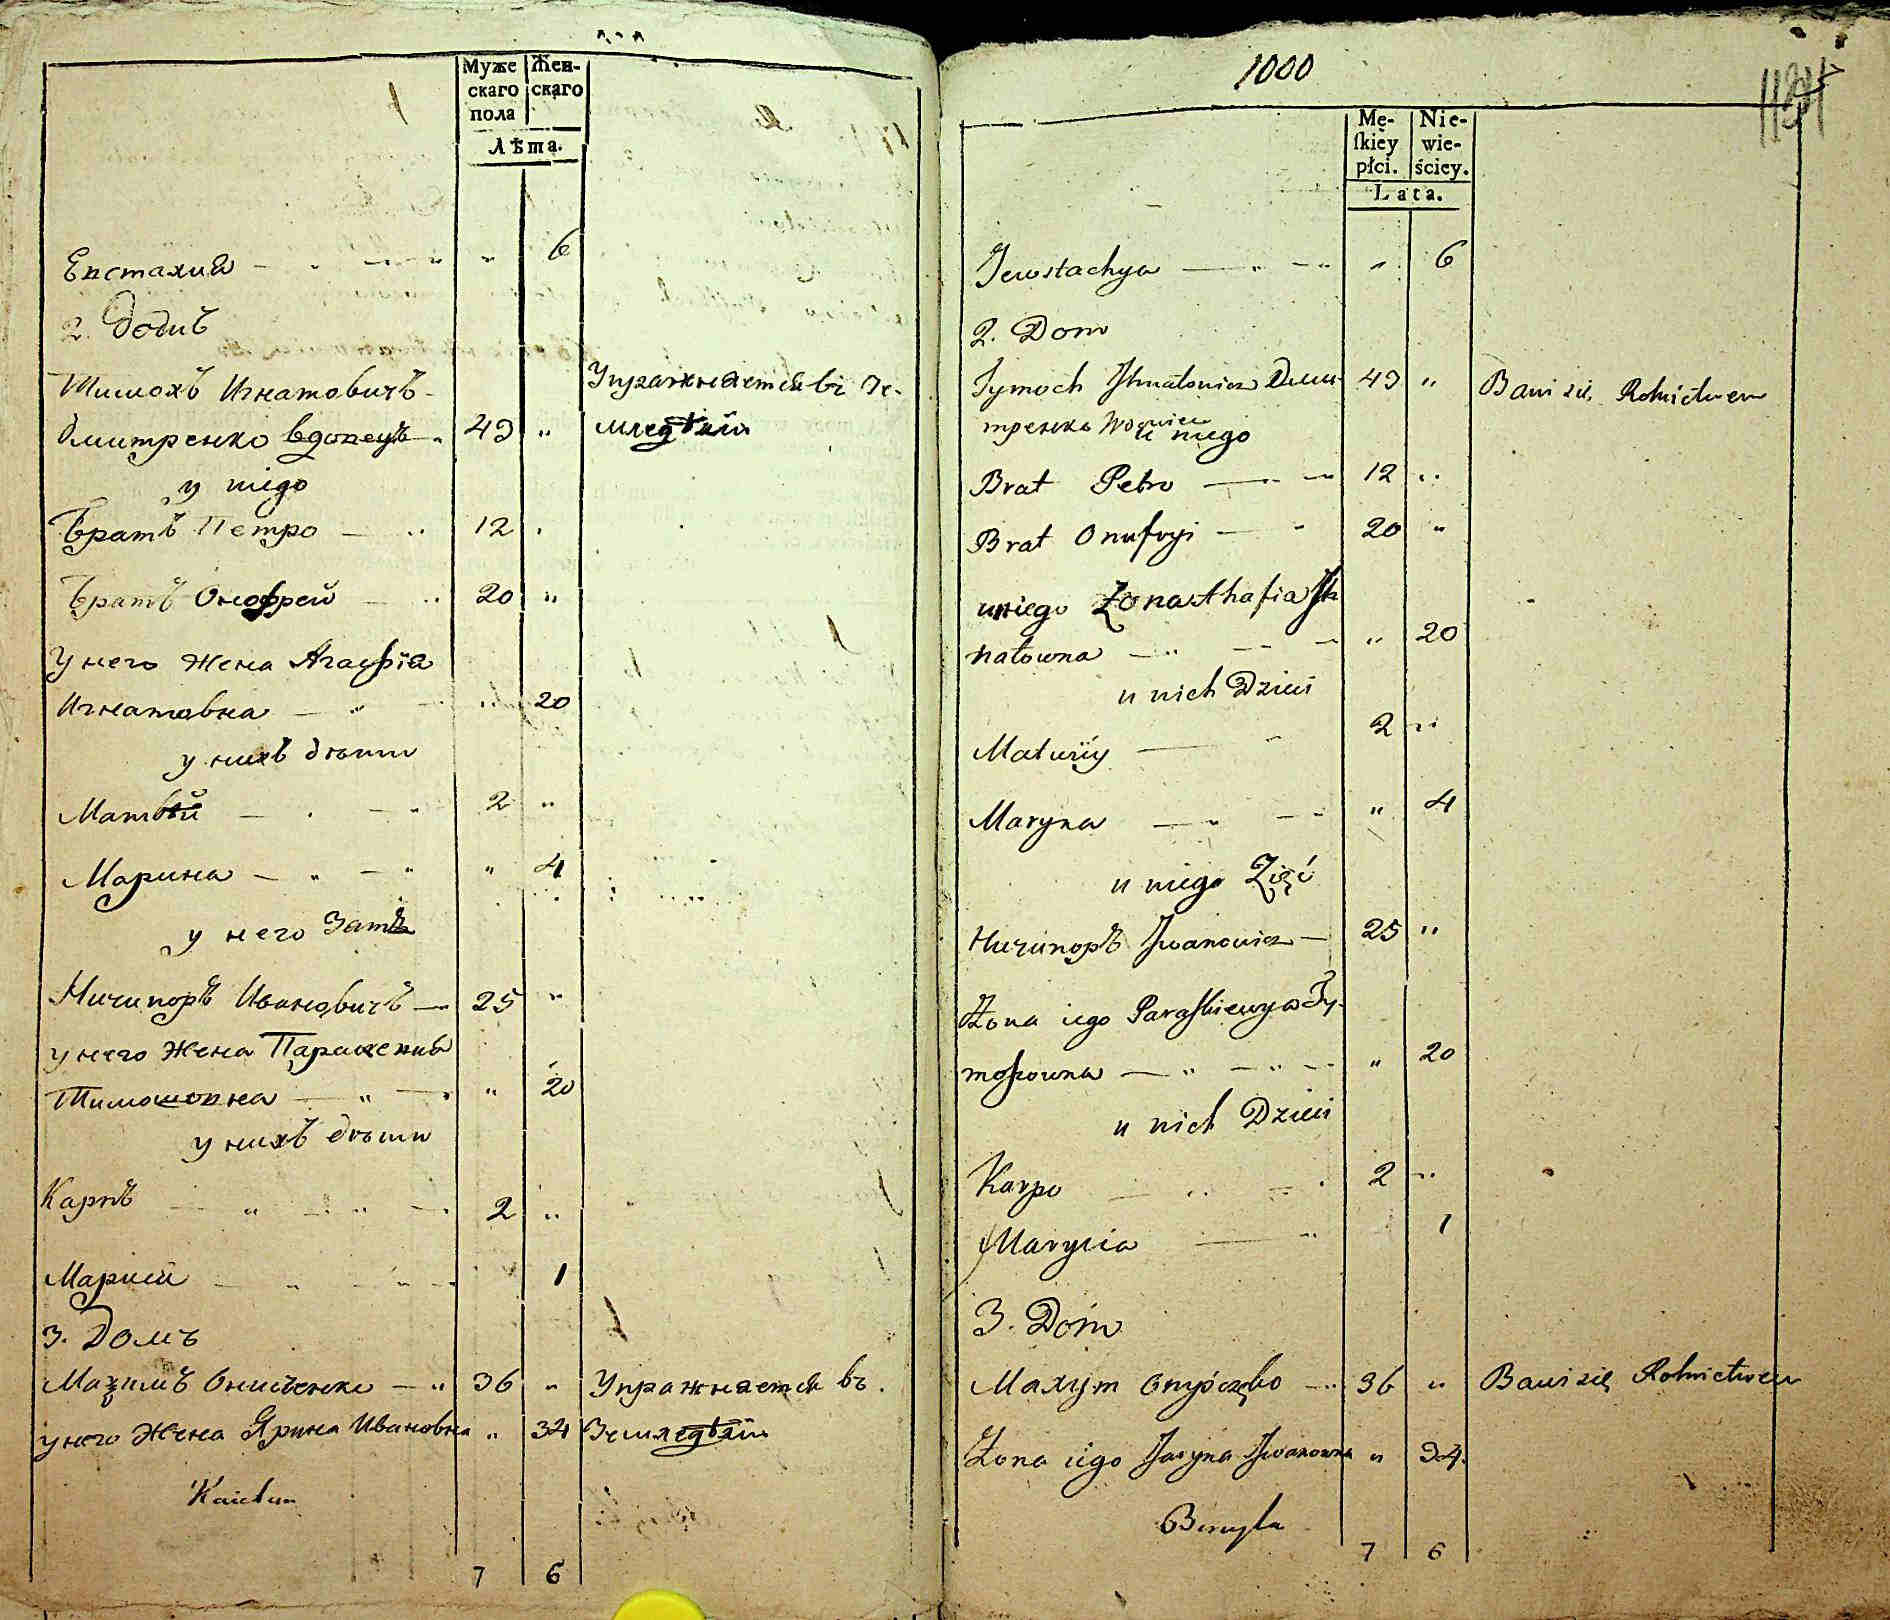 Муже скаго пола
Жен- скаго
Лѣта.
Евстахия 6
2. Домъ
Тимохъ Игнатовичъ
Дмитренко вдовецъ 43 Упражняется въ Зе-
мледѣлии
у niego
Братъ Петро 12
Братъ Онофрей 20
У него Жена Агафiя
Игнатовна 20
у нихъ дѣти
Матвѣй 2
Марина 4
у него Зять
Ничипоръ Ивановичъ 25
у него Жена
Тимошовна 20
у нихъ дѣти
Карпъ 2
1
3. Домъ
Онисченко 36 Упражняется въ
у него Жена Ярина Ивановна 34 Земледѣлии
7 6
1000
Mę- ſkiey płci.
Nie- wie- ściey.
Lata.
Jewstachya 6
2. Dom
Tymoch Ihnatowicz Дми- 43 Bawi się Rolnictwem
тренко
u niego
Brat Petro 12
Brat Onufryi 20
u niego Żona Ahafia Ih
natowna 20
u nich Dzieci
Matwiy 2
Maryna 4
u niego Zięć
Ничипоръ Iwanowicz 25
Żona iego Paraskiewya Ty-
moszowna 20
u nich Dzieci
Karpo 2
Marycia 1
3. Dom
Maxym 36 Bawi się Rolnictwem
Żona iego Jaryna Iwanowna 34
7 6